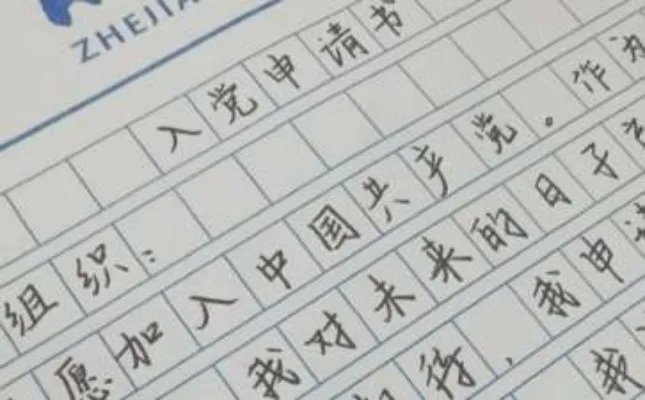 ZHEJIA
入党申请书
组织：
愿加入中国共产党。作为
我对未来的日子充
期待，我申请
我